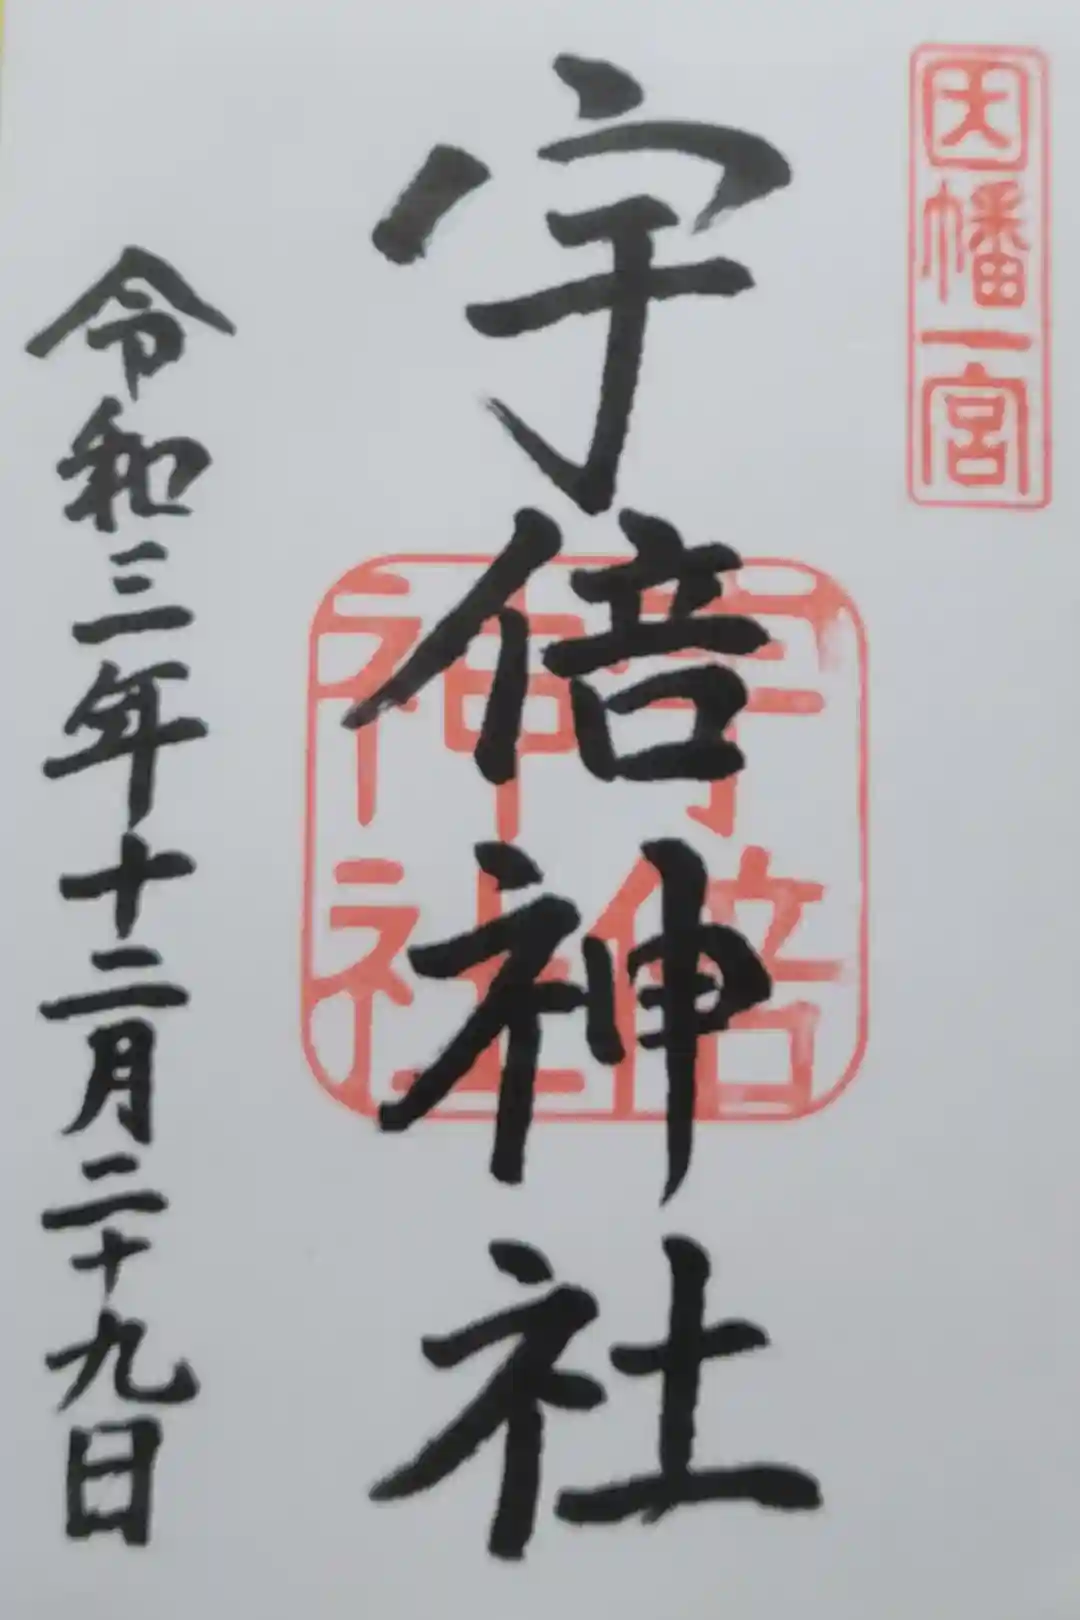 因幡一宮
宇倍神社
宇倍
神社
令和三年十二月二十九日